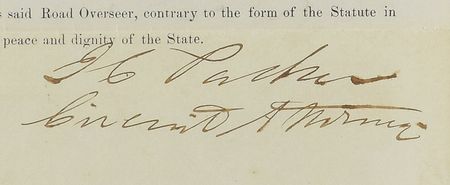 s said Road Overseer, contrary to the form of the Statute in
peace and dignity of the State.
Parker
Circuit Attorney